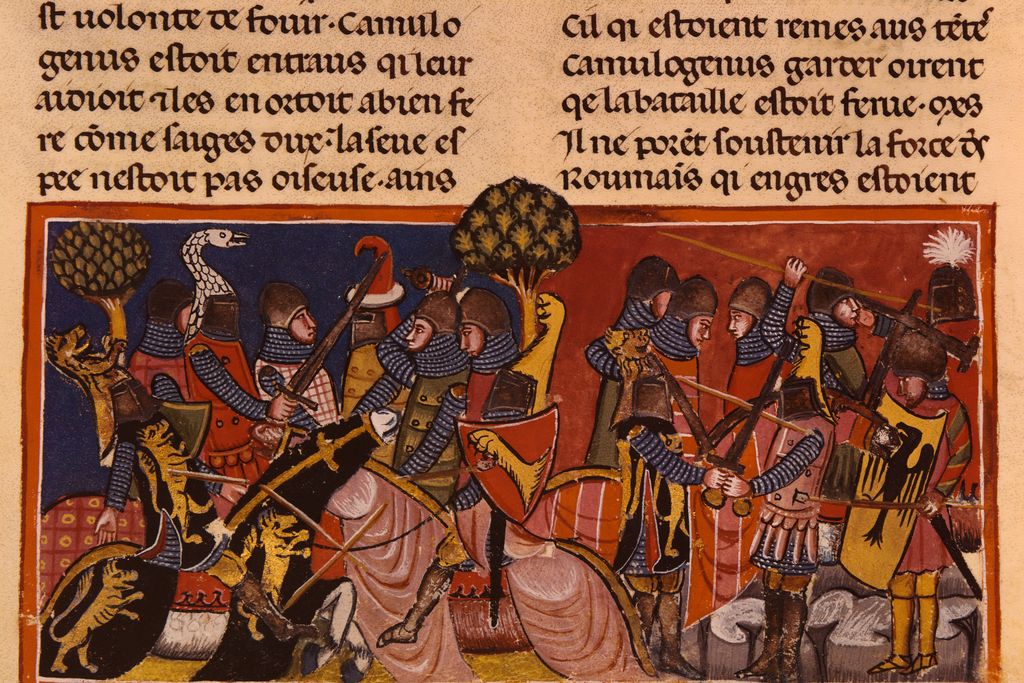 st uolonte de fouir·Camulo
genus estoit entraus qi leur
aidioit ⁊ les enortoit a bien fe
re cõme saiges dux·⁊ la seue es
pee nestoit pas oiseuse·ains
Cil qi estoient remes aus têtes
Camulogenus garder oirent
qe la bataille estoit ferue·mes
Il ne porêt soustenir la force des
Roumaïs qi engres estoient